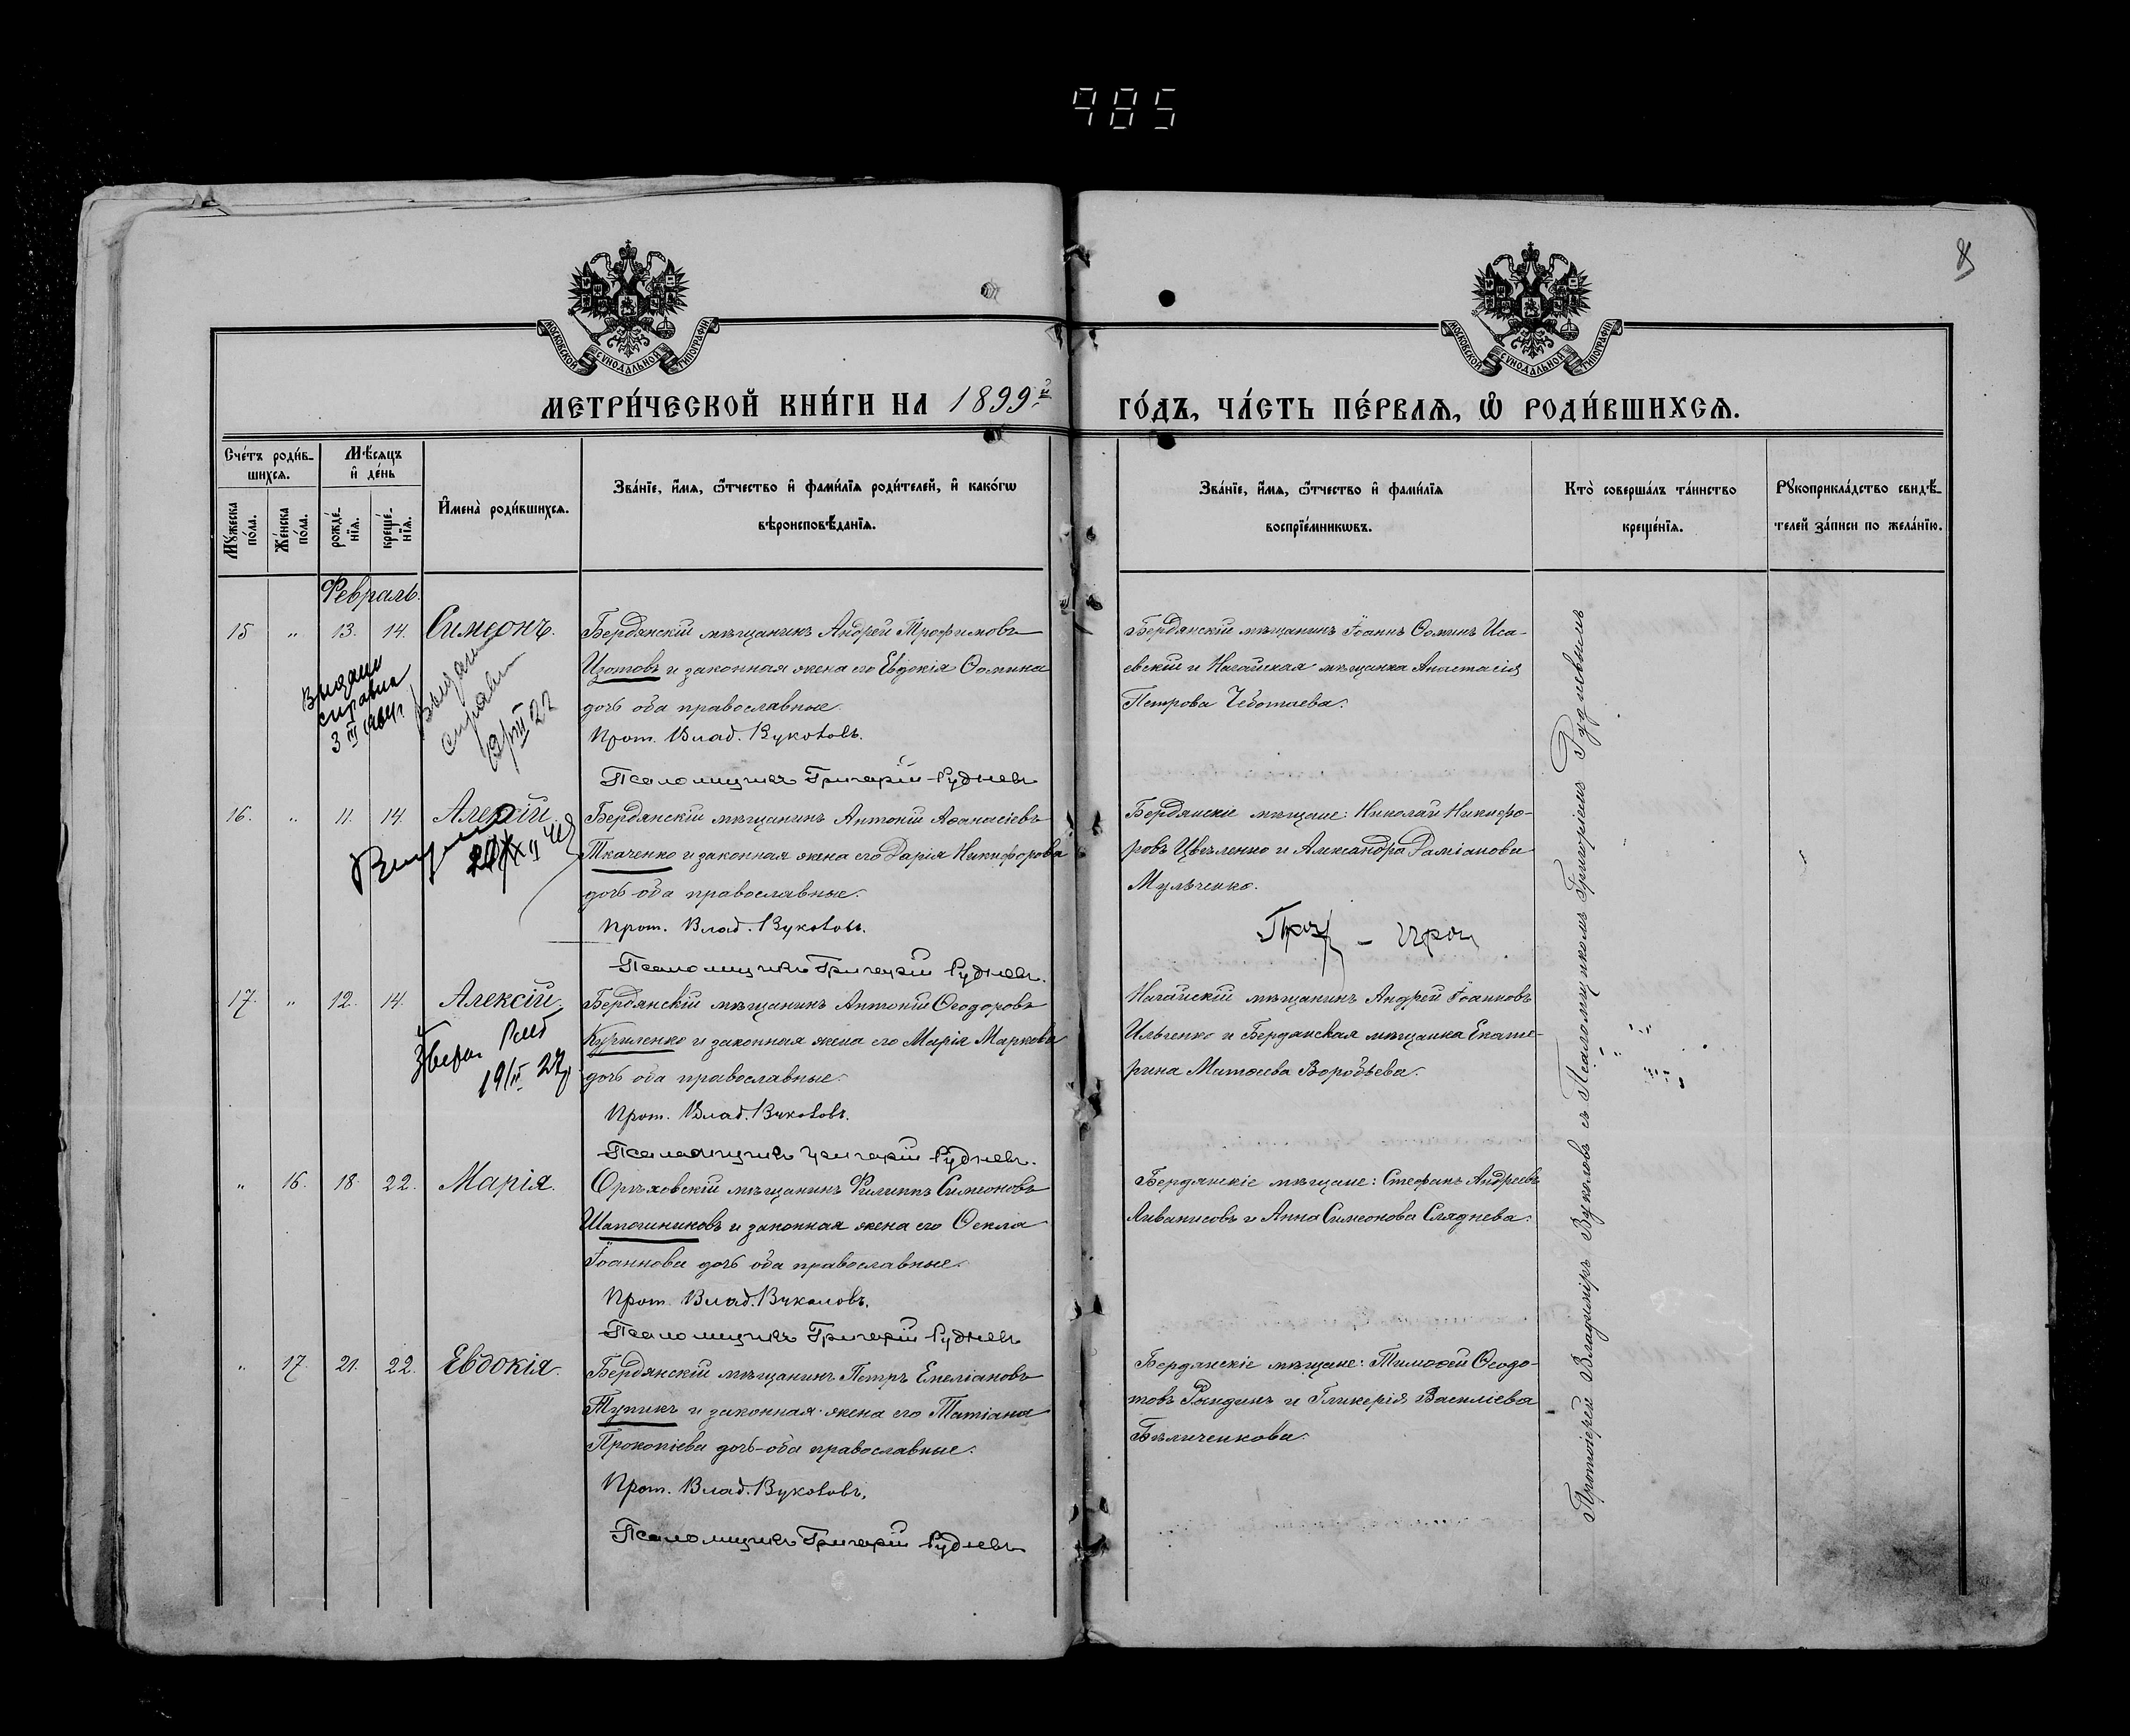 985
8
МОСКОВСКОЙ СѴНОДАЛЬНОЙ ТИПОГРАФІИ
МОСКОВСКОЙ СѴНОДАЛЬНОЙ ТИПОГРАФІИ
МЕТРИ́ЧЕСКОЙ КНИ́ГИ НА 1899й
ГО́ДЪ, ЧА́СТЬ ПЕ́РВАѦ, Ѡ РОДИ́ВШИХСѦ.
Сче́тъ роди́в-
шихсѧ.
Мꙋ́жеска
по́ла.
Же́нска
по́ла.
Мѣ́сѧцъ
и҆ де́нь
рожде́-
нїѧ.
креще́-
нїѧ.
И҆мена̀ роди́вшихсѧ.
Зва́нїе, и҆́мѧ, ѻ҆́тчество и҆ фами́лїѧ роди́телей, и҆ како́гѡ
вѣроисповѣ́данїѧ.
Зва́нїе, и҆́мѧ, ѻ҆́тчество и҆ фами́лїѧ
воспрїе́мникѡвъ.
Кто̀ соверша́лъ та́инство
креще́нїѧ.
Рꙋкоприкла́дство свидѣ́-
телей за́писи по жела́нїю.
Февраль.
15 " 13. 14. Симеонъ.
Бердянскій мѣщанинъ Андрей Трофимовъ
Изотовъ и законная жена его Евдокія Ѳомина
дочь оба православные.
Прот. Влад. Вуколовъ.
Псаломщикъ Григорій Рудневъ
Бердянскій мѣщанинъ Іоаннъ Ѳоминъ Иса-
евскій и Ногайская мѣщанка Анастасія
Петрова Чеботаева.
Выдана
справка
3 III 1964 г.
Выдан
справк
III 22
16. " 11. 14. Алексій.
Бердянскій мѣщанинъ Антоній Аѳанасіевъ
Ткаченко и законная жена его Дарія Никифорова
дочь оба православные.
Прот. Влад. Вуколовъ.
Псаломщикъ Григорій Рудневъ.
Бердянскіе мѣщане: Николай Никифо-
ровъ Цвѣленко и Александра Даміанова
Мульченко.
17. " 12. 14. Алексій.
Бердянскій мѣщанинъ Антоній Ѳеодоровъ
Куриленко и законная жена его Марія Маркова
дочь оба православные.
Прот. Влад. Вуколовъ.
Псаломщикъ Григорій Рудневъ.
Ногайскій мѣщанинъ Андрей Іоанновъ
Ильченко и Бердянская мѣщанка Екате-
рина Матѳеева Воробьева.
" 16. 18. 22. Марія.
Орѣховскій мѣщанинъ Филиппъ Симеоновъ
Шапошниковъ и законная жена его Ѳекла
Іоаннова дочь оба православные.
Прот. Влад. Вуколовъ.
Псаломщикъ Григорій Рудневъ
Бердянскіе мѣщане: Стефанъ Андреевъ
Ливанисовъ и Анна Симеонова Сляднева.
" 17. 21. 22. Евдокія.
Бердянскій мѣщанинъ Петръ Емеліановъ
Тупикъ и законная жена его Татіана
Прокопіева дочь-оба православные.
Прот. Влад. Вуколовъ.
Псаломщикъ Григорій Рудневъ
Бердянскіе мѣщане: Тимоѳей Ѳеодо-
товъ Рындинъ и Гликерія Василіева
Бѣличенкова.
Протоіерей Владиміръ Вуколовъ съ Псаломщикомъ Григоріемъ Рудневымъ